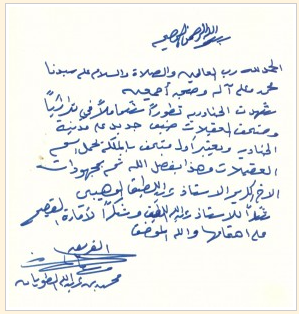 بسم الله الرحمن الرحيم
الحمد لله رب العالمين والصلاة والسلام على سيدنا
محمد وعلى آله وصحبه أجمعين
شهدت الجنادرية تطوراً شاملاً في تراثياً
ومتحف العقيلات ضيف جديد على مدينة
الجنادرية ويعتبر أول متحف بالمملكة يحمل اسم
العقيلات وهذا بفضل الله ثم بمجهودات
الاخ الكريم الاستاذ عبد اللطيف الوهيبي
شكراً للاستاذ عبد اللطيف وشكراً لأمارة القصيم
على اهتمامها والله الموفق
محمد بن عبد الله